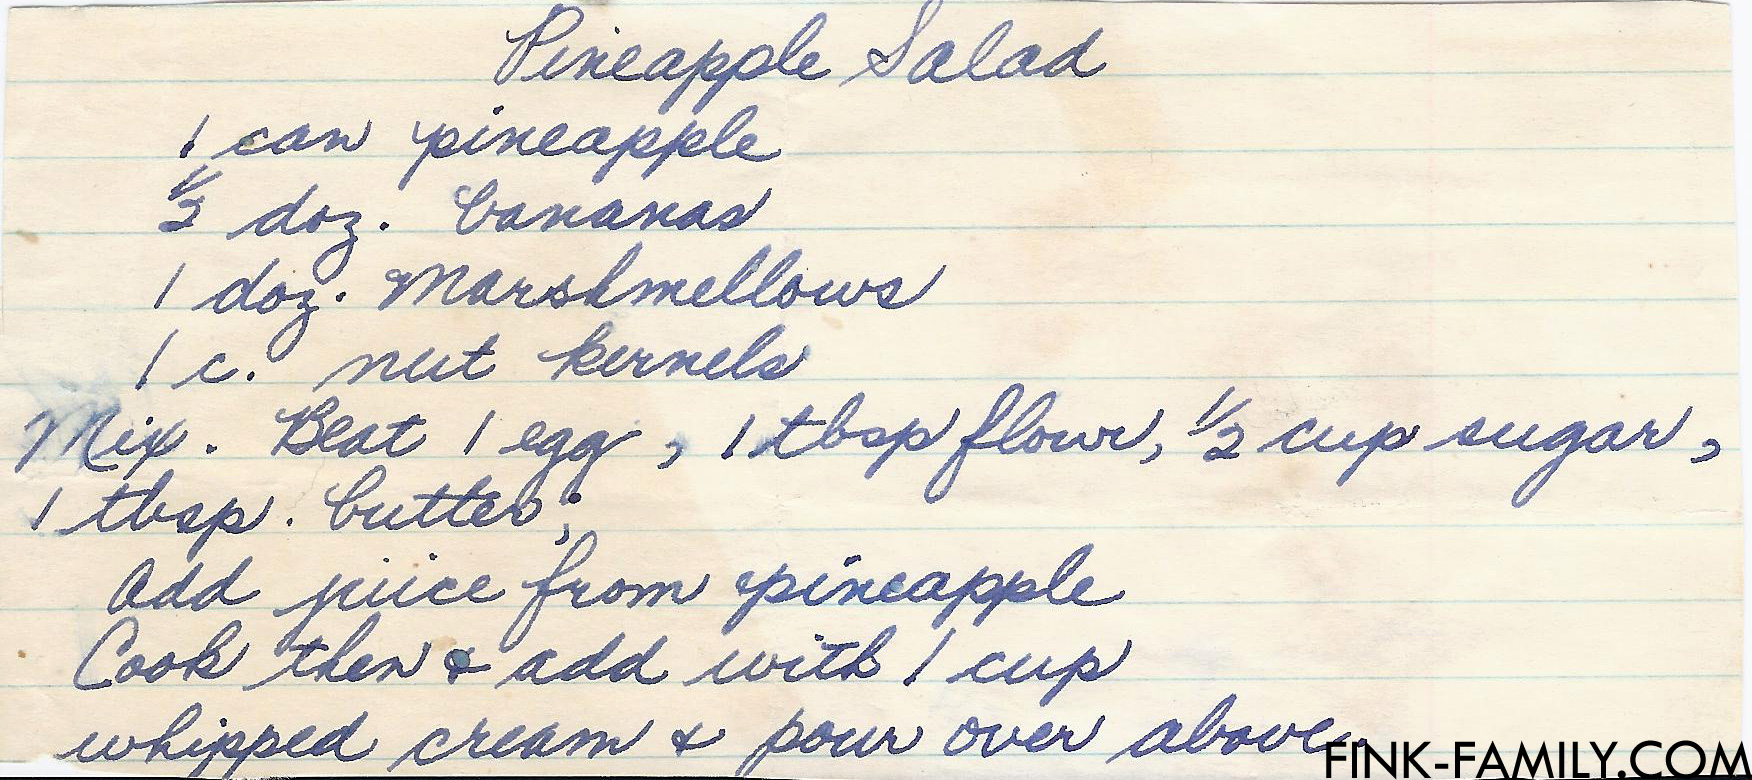 Pineapple Salad
1 can pineapple
1/2 doz. bananas
1 doz. Marshmellows
1 c. nut kernels
Mix. Beat 1 egg, 1 tbsp flour, 1/2 cup sugar,
1 tbsp. butter;
Add juice from pineapple
Cook then & add with 1 cup
whipped cream & pour over above.
FINK-FAMILY.COM